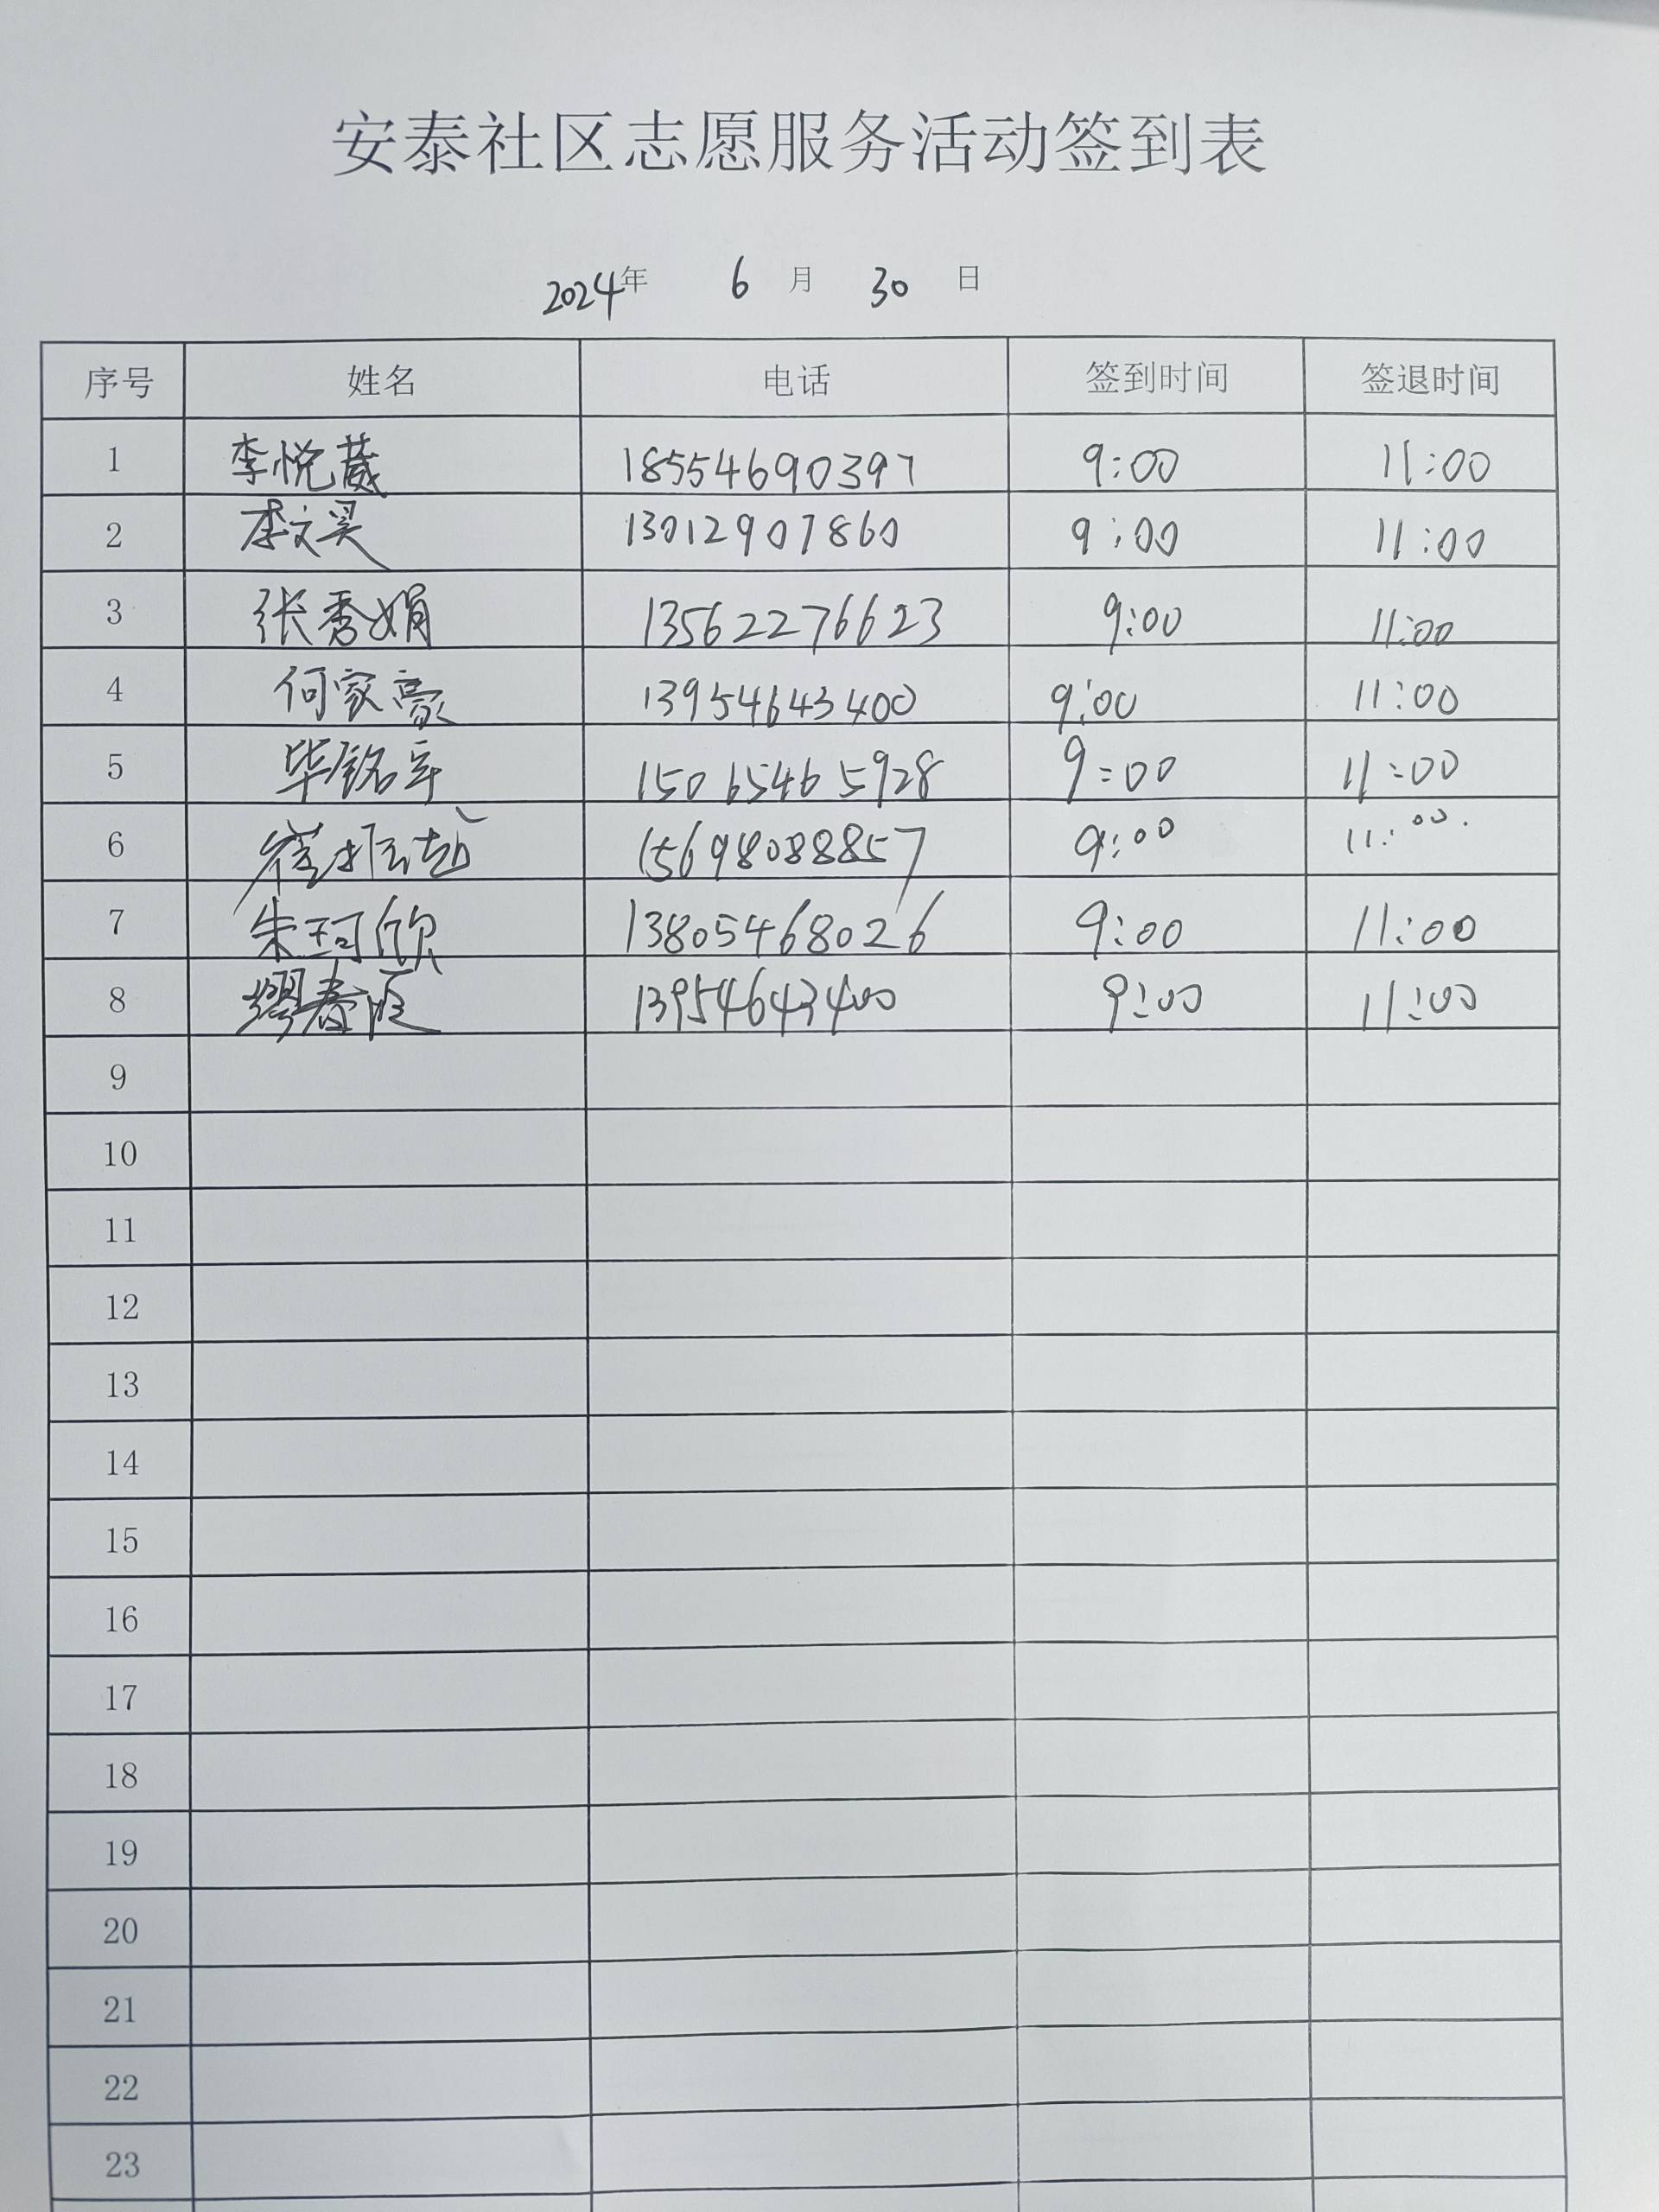 安泰社区志愿服务活动签到表
2024年 6 月 30 日
序号 姓名 电话 签到时间 签退时间
1 李悦葳 18554690397 9:00 11:00
2 李文昊 13012907860 9:00 11:00
3 张秀娟 13562276623 9:00 11:00
4 何家豪 13954643400 9:00 11:00
5 毕铭军 15065465928 9:00 11:00
6 崔振越 15698088857 9:00 11:00
7 朱珂欣 13805468026 9:00 11:00
8 缪春波 13954643400 9:00 11:00
9
10
11
12
13
14
15
16
17
18
19
20
21
22
23